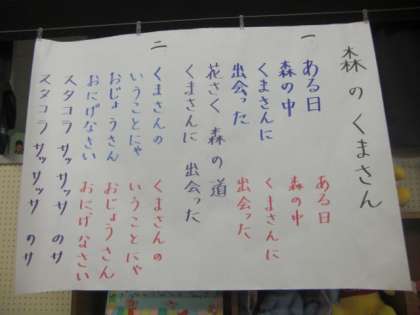 森のくまさん
一 ある日 ある日
森の中 森の中
くまさんに くまさんに
出会った 出会った
花さく森の道
くまさんに出会った
二 くまさんの くまさんの
いうことにゃ いうことにゃ
おじょうさん おじょうさん
おにげなさい おにげなさい
スタコラ サッサッサ のサ
スタコラ サッサッサ のサ